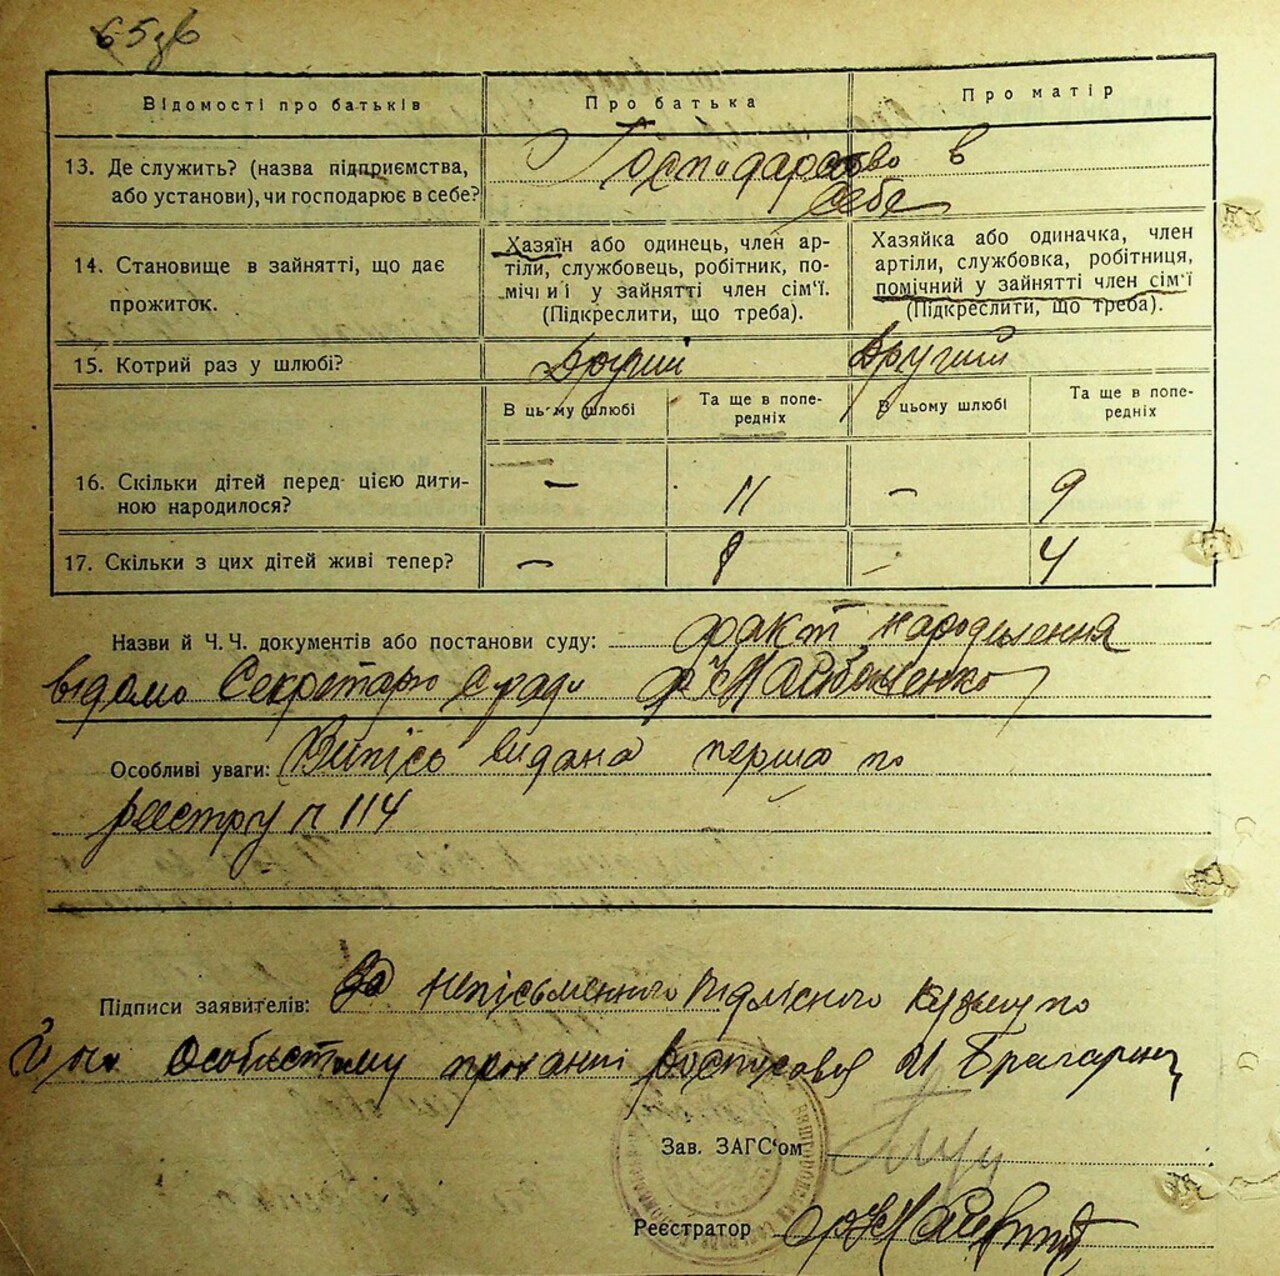 65зв
Відомості про батьків
Про батька
Про матір
13. Де служить? (назва підприємства,
або установи), чи господарює в себе?
Господарство в
себе
14. Становище в зайнятті, що дає
прожиток.
Хазяїн або одинець, член ар-
тіли, службовець, робітник, по-
мічний у зайнятті член сім'ї.
(Підкреслити, що треба).
Хазяйка або одиначка, член
артіли, службовка, робітниця,
помічний у зайнятті член сім'ї
(Підкреслити, що треба).
15. Котрий раз у шлюбі?
Другий
Другий
В цьому шлюбі
Та ще в попе-
редніх
В цьому шлюбі
Та ще в попе-
редніх
16. Скільки дітей перед цією дити-
ною народилося?
— 11 — 9
17. Скільки з цих дітей живі тепер?
— 8 — 4
Назви й Ч. Ч. документів або постанови суду: факт народження
відомо Секретарю с/ради
Особливі уваги: Випісь видана перша по
реєстру п 114
Підписи заявителів: За непісьменного підпісного по
його Особистому проханні росписався
Зав. ЗАГС'ом
Реєстратор